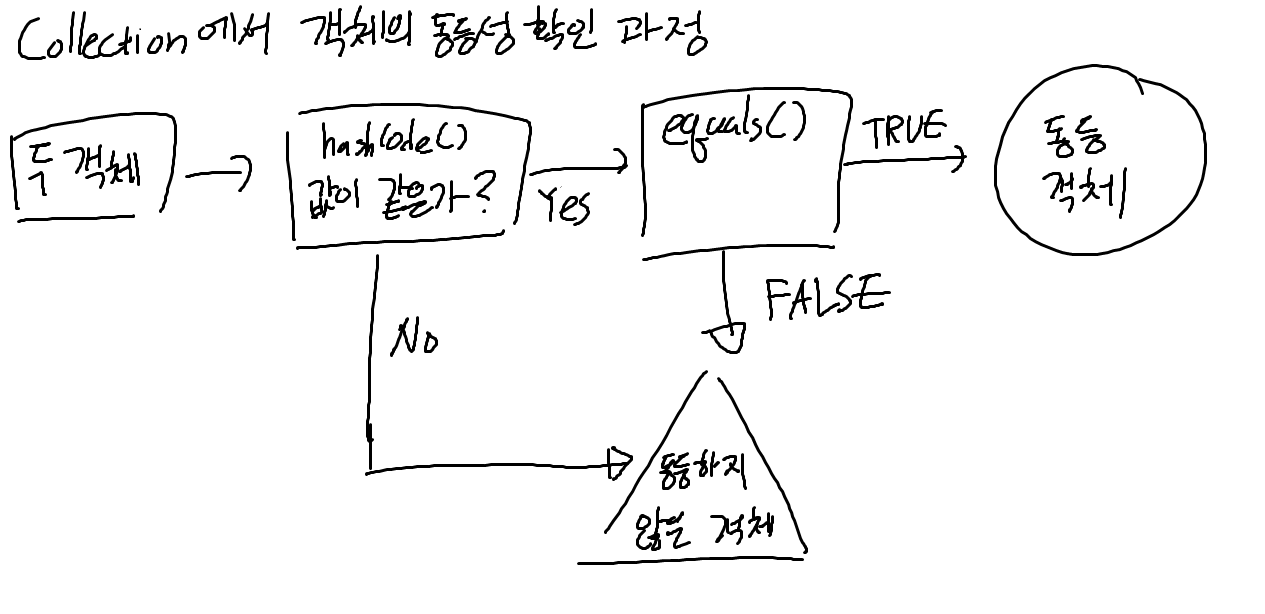 Collection에서 객체의 동등성 확인 과정
두 객체
hashCode()
값이 같은가?
Yes
equals()
TRUE
동등
객체
No
FALSE
동등하지
않은 객체